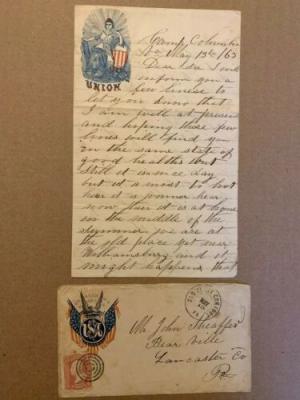 UNION
Camp
May 13th / 63
Dear Sir I will
inform you a
few lines to
let you know that
I am well at present
and hoping these few
lines will find you
in the same state of
good health but
still it is nice day
but it a most to hot
here it a
now then it is at home
in the middle of the
Summer we are at
the old place yet near
Williamsburg and it
might happens that
Mr. John Sheaffer
Bear Ville
Lancaster Co
Pa